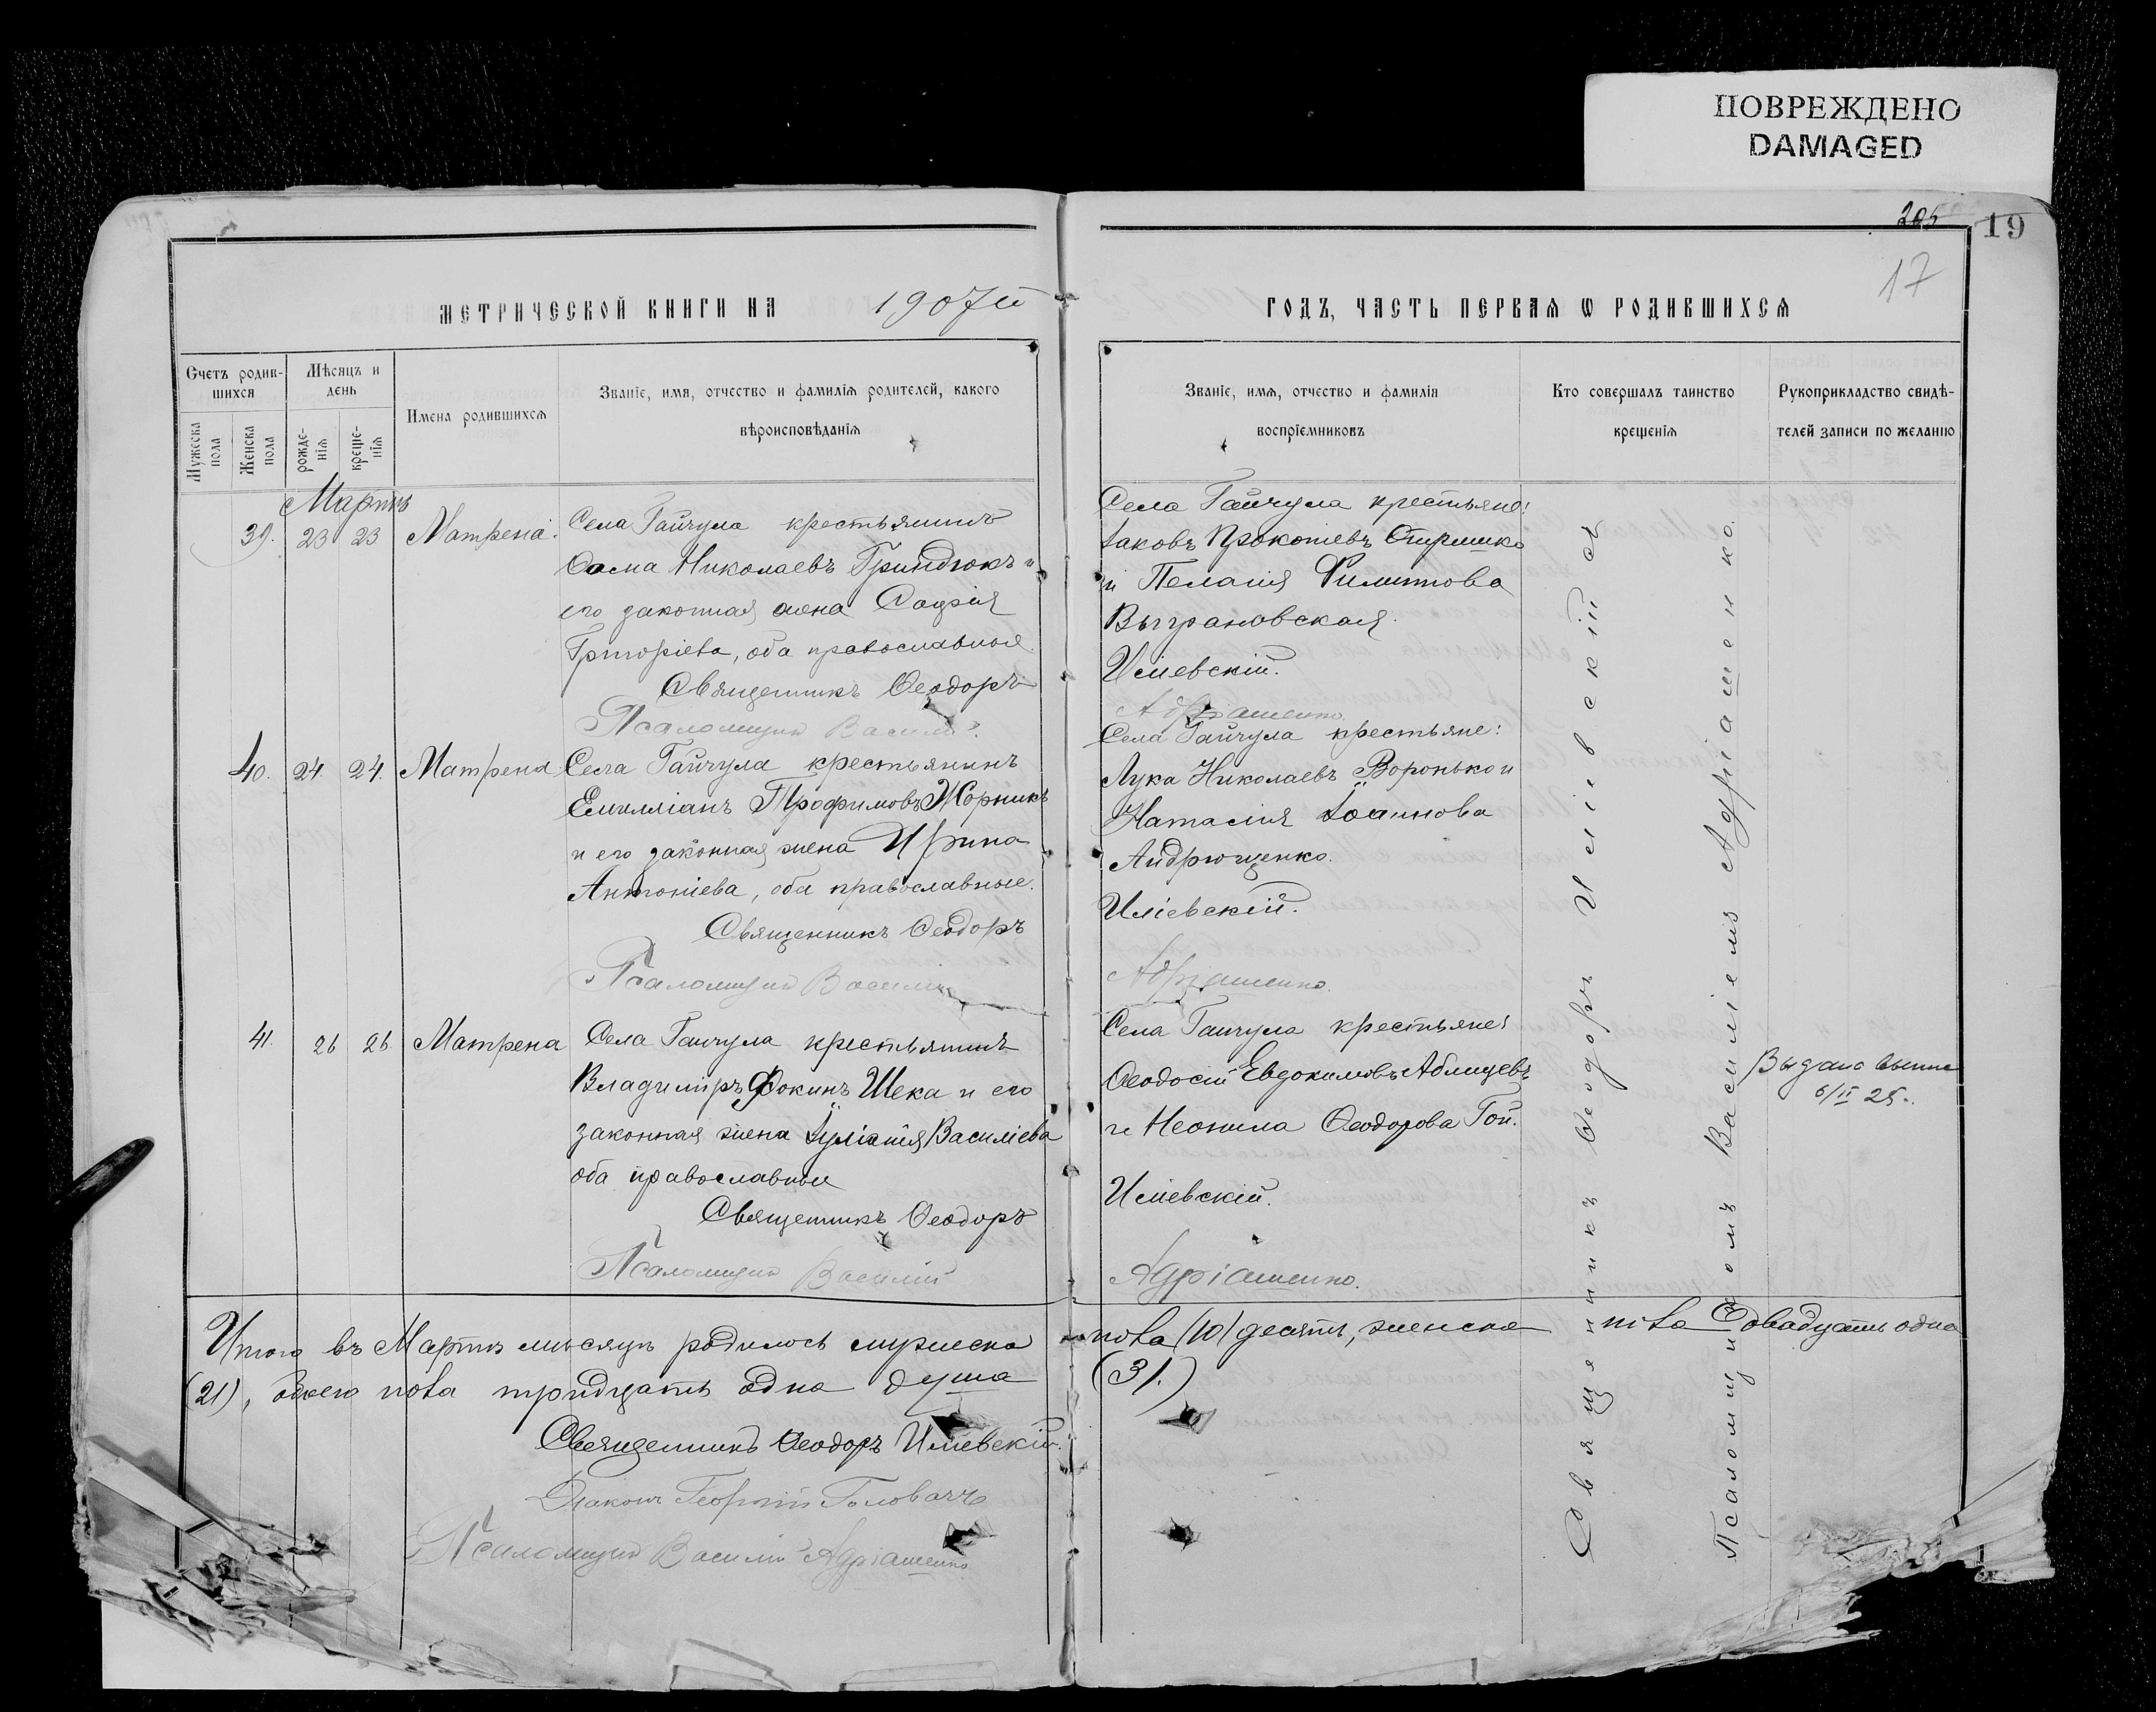 ПОВРЕЖДЕНО
DAMAGED
205
19
17
МЕТРИЧЕСКОЙ КНИГИ НА 1907й
ГОДЪ, ЧАСТЬ ПЕРВАЯ Ѡ РОДИВШИХСЯ
Счетъ родив-
шихся
Мужеска
пола
Женска
пола
Мѣсяцъ и
день
рожде-
нія
креще-
нія
Имена родившихся
Званіе, имя, отчество и фамилія родителей, какого
вѣроисповѣданія
Званіе, имя, отчество и фамилія
воспріемниковъ
Кто совершалъ таинство
крещенія
Рукоприкладство свидѣ-
телей записи по желанію
Мартъ
39. 23 23 Матрена.
Села Гайчула крестьянинъ
Ѳома Николаевъ Гриндюкъ и
его законная жена Софія
Григоріева, оба православные.
Священникъ Ѳеодоръ
Псаломщикъ Василій
Села Гайчула крестьяне:
Іаковъ Прокопіевъ
и Пелагія Филиппова
Выграновская.
Иліевскій.
Адріашенко.
40. 24. 24. Матрена
Села Гайчула крестьянинъ
Емилліанъ Трофимовъ Жорникъ
и его законная жена Ирина
Антоніева, оба православные.
Священникъ Ѳеодоръ
Псаломщикъ Василій
Села Гайчула крестьяне:
Лука Николаевъ Воронько и
Наталія Іоаннова
Андрющенко.
Иліевскій.
Адріашенко.
41. 26 26 Матрена
Села Гайчула крестьянинъ
Владиміръ Фокинъ Шека и его
законная жена Іуліанія Василіева
оба православные
Священникъ Ѳеодоръ
Псаломщикъ Василій
Села Гайчула крестьяне:
Ѳеодосій Евдокимовъ Аблицевъ
и Неонила Ѳеодорова Гой.
Иліевскій.
Адріашенко.
Священникъ Ѳеодоръ Иліевскій съ
Псаломщикомъ Василіемъ Адріашенко.
Выдано
6/II 25.
Итого въ Мартѣ мѣсяцѣ родилось мужеска пола (10) десять, женска пола двадцать одна
(21), обоего пола тридцать одна душа (31.)
Священникъ Ѳеодоръ Иліевскій.
Діаконъ Георгій Головачъ
Псаломщикъ Василій Адріашенко